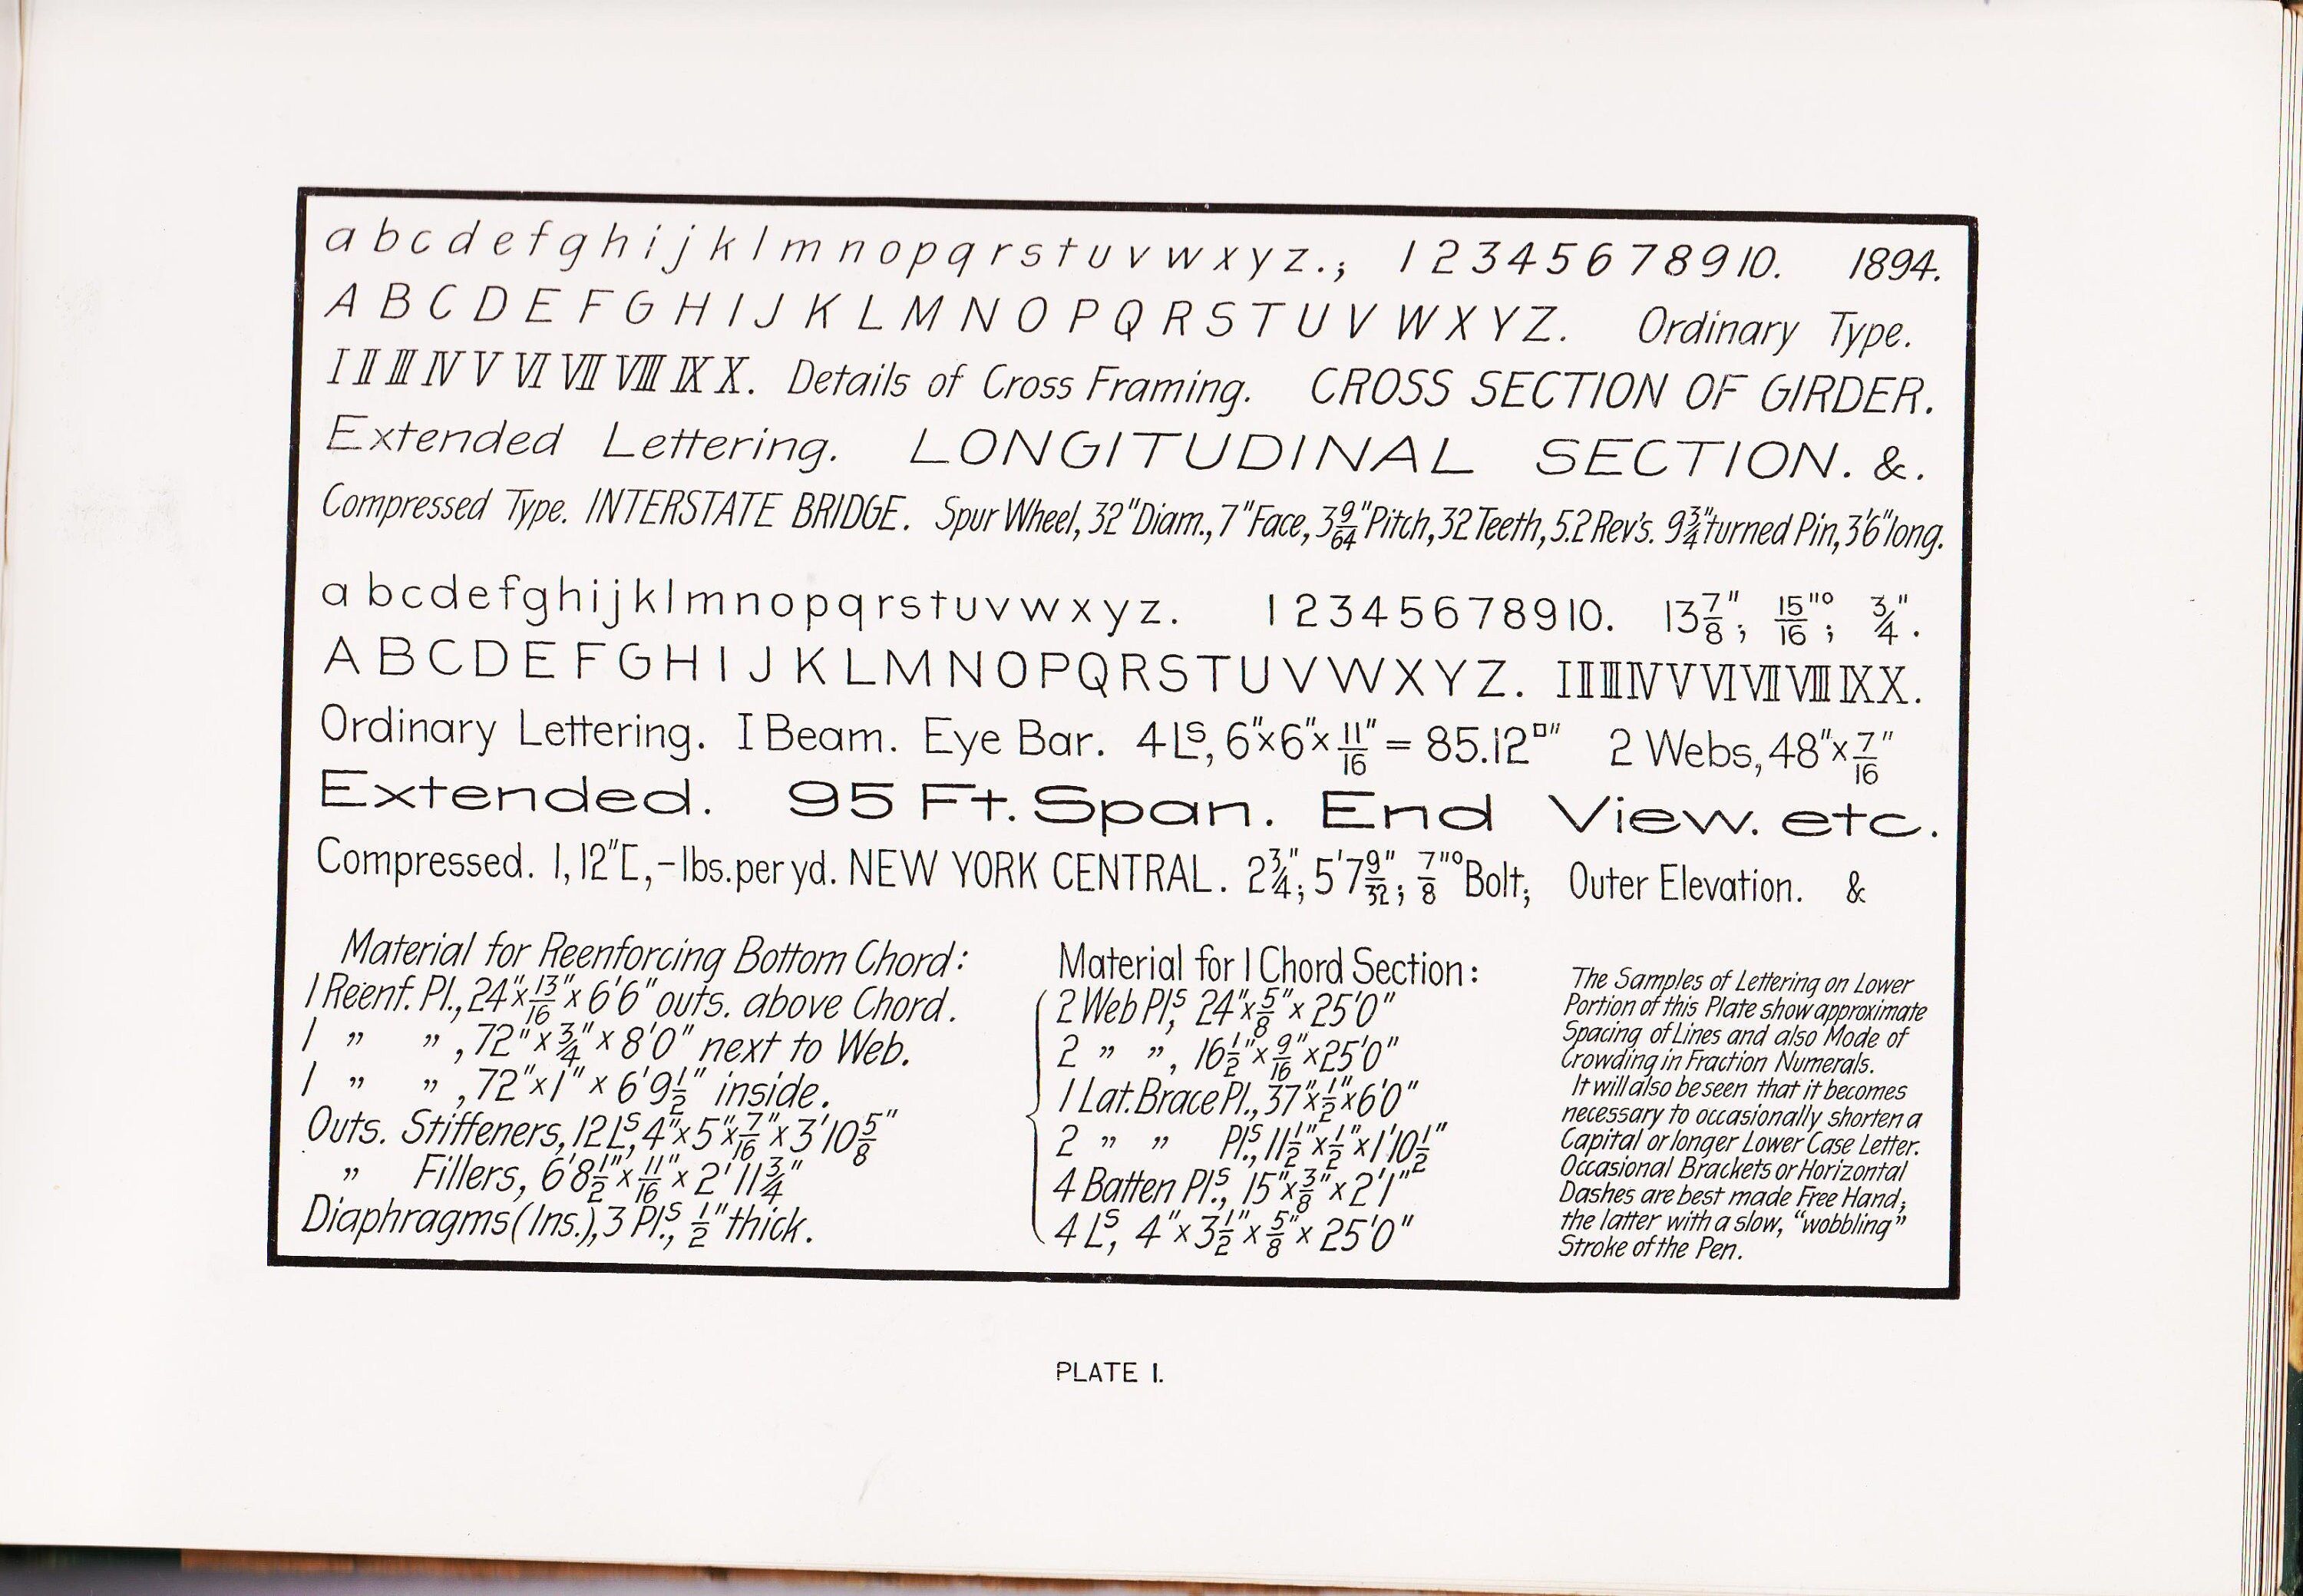 a b c d e f g h i j k l m n o p q r s t u v w x y z . ; 1 2 3 4 5 6 7 8 9 10. 1894.
A B C D E F G H I J K L M N O P Q R S T U V W X Y Z. Ordinary Type.
I II III IV V VI VII VIII IX X. Details of Cross Framing. CROSS SECTION OF GIRDER.
Extended Lettering. LONGITUDINAL SECTION. &.
Compressed Type. INTERSTATE BRIDGE. Spur Wheel, 32" Diam., 7" Face, 3 9/64" Pitch, 32 Teeth, 5.2 Rev's. 9 3/4" turned Pin, 3'6" long.
a b c d e f g h i j k l m n o p q r s t u v w x y z. 1 2 3 4 5 6 7 8 9 10. 13 7/8"; 15/16"°; 3/4".
A B C D E F G H I J K L M N O P Q R S T U V W X Y Z. I II III IV V VI VII VIII IX X.
Ordinary Lettering. I Beam. Eye Bar. 4 Ls, 6"x6"x 11/16" = 85.12□" 2 Webs, 48"x 7/16"
Extended. 95 Ft. Span. End View. etc.
Compressed. 1, 12"[, – lbs. per yd. NEW YORK CENTRAL. 2 3/4"; 5'7 9/32"; 7/8"° Bolt; Outer Elevation. &
Material for Reenforcing Bottom Chord:
1 Reenf. Pl., 24"x 13/16"x 6'6" outs. above Chord.
1 " ", 72"x 3/4"x 8'0" next to Web.
1 " ", 72"x1"x 6'9 1/2" inside.
Outs. Stiffeners, 12 Ls, 4"x5"x 7/16"x 3'10 5/8"
" Fillers, 6'8 1/2"x 11/16"x 2'11 3/4"
Diaphragms (Ins.), 3 Pls., 1/2" thick.
Material for 1 Chord Section:
2 Web Pls, 24"x 5/8"x 25'0"
2 " ", 16 1/2"x 9/16"x25'0"
1 Lat. Brace Pl., 37"x 1/2"x6'0"
2 " " Pls., 11 1/2"x 1/2"x1'10 1/2"
4 Batten Pls., 15"x 3/8"x 2'1"
4 Ls, 4"x 3 1/2"x 5/8"x 25'0"
The Samples of Lettering on Lower
Portion of this Plate show approximate
Spacing of Lines and also Mode of
Crowding in Fraction Numerals.
It will also be seen that it becomes
necessary to occasionally shorten a
Capital or longer Lower Case Letter.
Occasional Brackets or Horizontal
Dashes are best made Free Hand;
the latter with a slow, "wobbling"
Stroke of the Pen.
PLATE I.